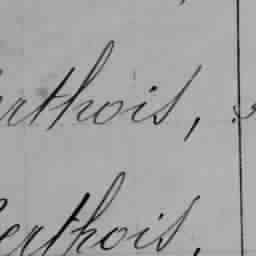 erthois,
Berthois,